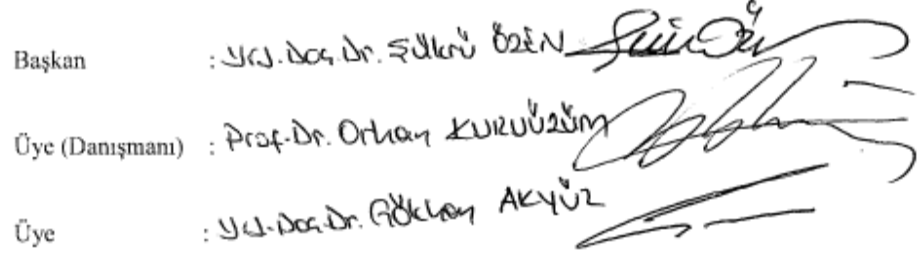 Başkan : Yrd. Doç. Dr. Şükrü ÖZEN
Üye (Danışmanı) : Prof. Dr. Orhan KURUÜZÜM
Üye : Yrd. Doç. Dr. Gökhan AKYÜZ